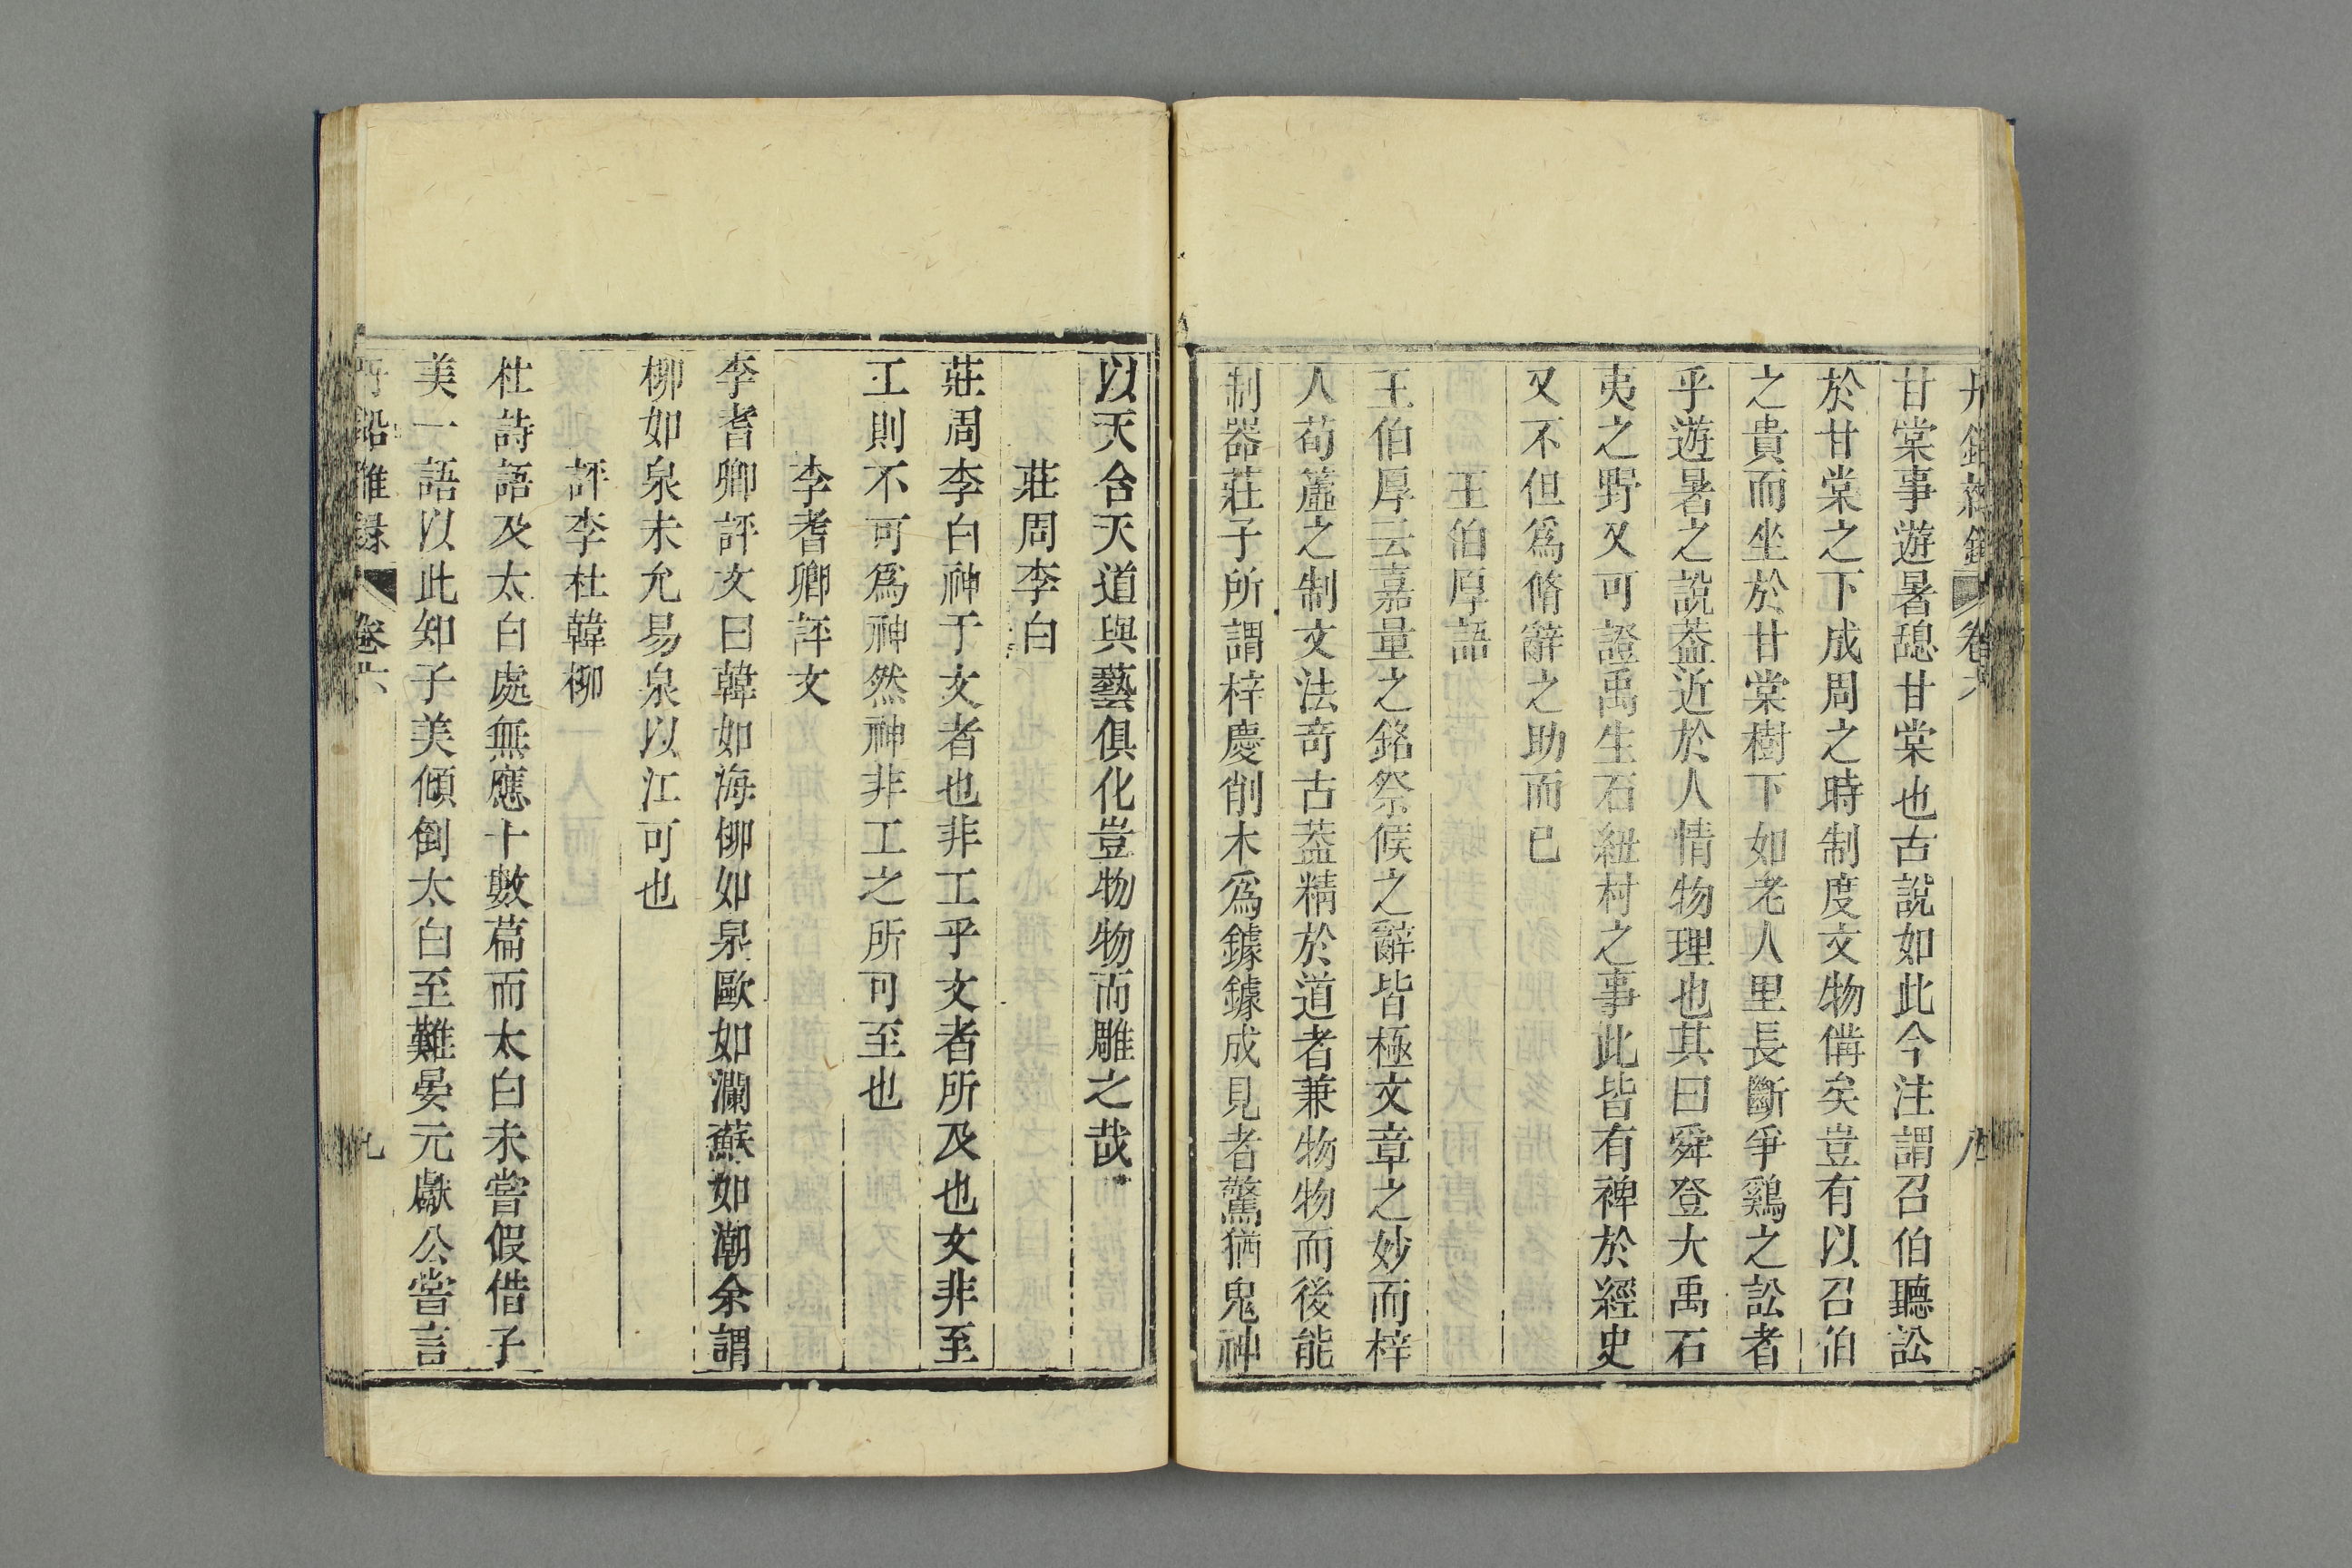 丹鉛雜錄 卷六 八
甘棠事遊暑憩甘棠也古說如此今注謂召伯聽訟
於甘棠之下成周之時制度文物備矣豈有以召伯
之貴而坐於甘棠樹下如老人里長斷爭鷄之訟者
乎遊暑之說葢近於人情物理也其曰舜登大禹石
夷之野又可證禹生石紐村之事此皆有裨於經史
又不但爲脩辭之助而已
王伯厚語
王伯厚云嘉量之銘祭侯之辭皆極文章之妙而梓
人荀簴之制文法奇古葢精於道者兼物物而後能
制器莊子所謂梓慶削木爲鐻鐻成見者驚猶鬼神
以天合天道與藝俱化豈物物而雕之哉
莊周李白
莊周李白神于文者也非工乎文者所及也文非至
工則不可爲神然神非工之所可至也
李耆卿評文
李耆卿評文曰韓如海柳如泉歐如瀾蘇如潮余謂
柳如泉未允易泉以江可也
評李杜韓柳
杜詩語及太白處無應十數篇而太白未嘗假借子
美一語以此知子美傾倒太白至難晏元獻公嘗言
丹鉛雜錄 卷六 九